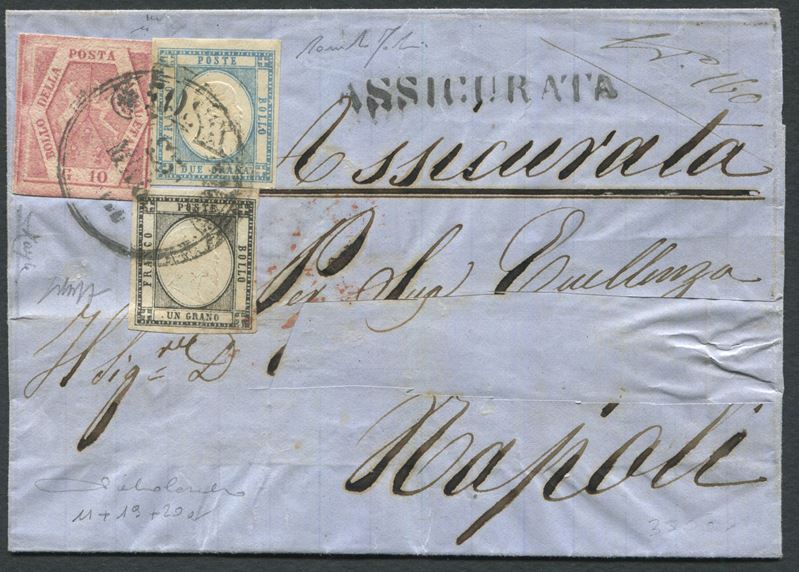 BOLLO DELLA POSTA NAPOLETANA
G. 10
POSTE
FRANCO
BOLLO
DUE GRANA
POSTE
FRANCO
BOLLO
UN GRANO
ASSICURATA
N.º 160
Assicurata
Per Sua Eccellenza
Il Sig.re D.
Napoli
11+19+20d